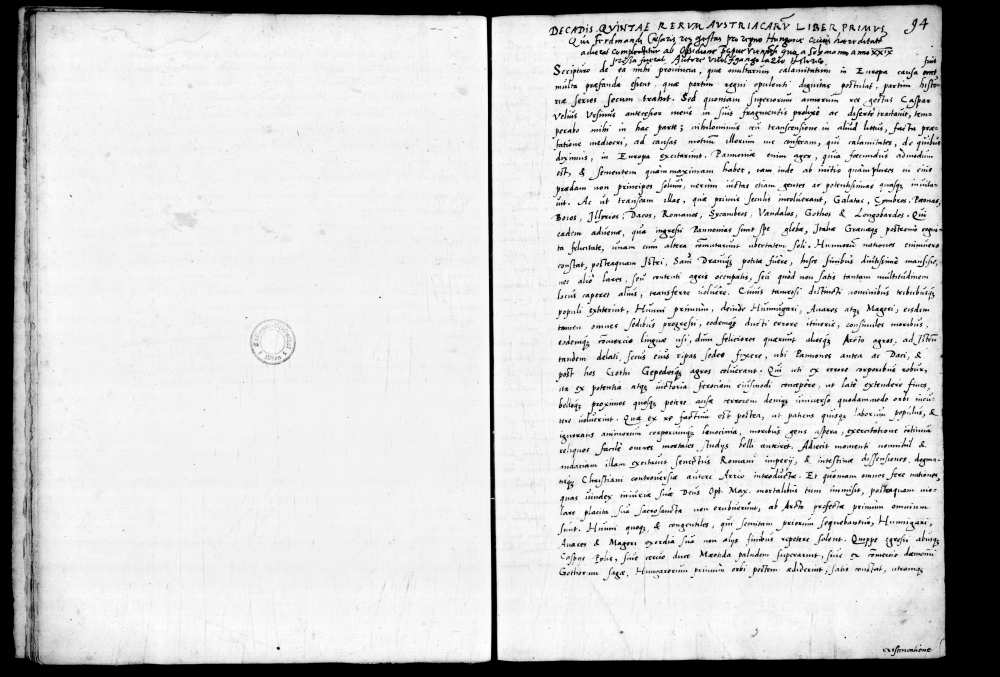 DECADIS QVINTAE RERVM AVSTRIACARV̄ LIBER PRIMVS 94
Qui Ferdinandi Caesaris res gestas pro regno Hungariae
adversus ab obsidione Viennensi quae a Solymanno anno XXIX
Autore Lazio
Scripturo de ea mihi provincia, quae multarum calamitatum in Europa causa
multa praefanda essent, quae partim regni opulenti dignitas postulat, partim histo-
riae series secum trahit. Sed quoniam superiorum annorum res gestas Caspar
Velius Ursinus antecessor meus in suis fragmentis prolixè ac disertè tractavit, tem-
perabo mihi in hac parte; nihilominus in aliud littus, facta prae-
fatione mediocri, ad causas motuum illorum me conferam, qui calamitates, de quibus
diximus, in Europa excitarunt. Pannoniae enim ager, quia foecundus admodum
est, & sementem quam maximam habet, iam inde ab initio quàmplures in eius
praedam non principes solum, verùm integras etiam gentes ac potentissimas quasq; invitav-
it. Ac ut transeam illas, quae primis seculis involverant, Galatas, Cymbros, Paeonas,
Boios, Illyrios, Dacos, Romanos, Sycambros, Vandalos, Gothos & Longobardos. Qui
eadem advenae, qua ingressi Pannonias sunt spe glebae, Italiae Graeciaeq; postremò cogni-
ta felicitate, unam cum altera commutarunt ubertatem soli. Hunnorum nationes enimvero
constat, posteaquam Istri, Savi Draviq; potitae fuêre, hisce finibus diutissimè mansisse,
nec aliò lares, seu contenti agris occupatis, seu quòd non satis tantam multitudinem
locus caperet alius, transferre voluêre. Cuius tametsi distincti nominibus tribubusq;
populi extiterint, Hunni primùm, deinde Hunnugari, Avares atq; Mageri, eisdem
tamen omnes sedibus progressi, eodemq; ducti errore itineris, consimiles moribus,
eodemq; commercio linguae usi, dum feliciores quaerunt agros, ad Istrum
tandem delati, secus eius ripas sedes fixere, ubi Pannones antea ac Daci, &
post hos Gothi Gepedesq; agros coluerant. Qui uti ex errore corporibus robur,
ita ex potentia atq; victoria ferociam eiusmodi concepêre, ut latè extendere fines,
belloq; proximos quosq; petere ausi terrorem deniq; universo quodammodo orbi incu-
tere voluerint. Qua ex re factum est postea, ut patiens quisq; laborum populus, &
ignorans animorum corporumq; lenocinia, moribus gens aspera, exercitatione continua
reliquos facilè omnes mortales studijs belli anteiret. Adiecit momenti nonnihil &
illam excitavit senectus Romani imperij, & intestinae dissensiones, dogma-
tisq; Christiani controversia autore Arrio introducta. Et quoniam omnes ferè nationes,
quas vindex iniuriae suae Deus Opt. Max. mortalibus tum immisit, posteaquam vio-
lare placita sua sacrosancta non erubuerint, ab Arcto profectae primùm omnium
sunt. Hunni quoq; & congentiles, qui semitam priorum sequebantur, Hunnigari,
Avares & Mageri exordia sua non alijs finibus repetere solent. Quippe egressi
Caspias, sive cervo duce Maeotida paludem superarunt, sive ex commercio daemonij
Gothorum sagae, Hungarorum primùm orbi pestem aediderint, satis constat, utrumq;
existimatione